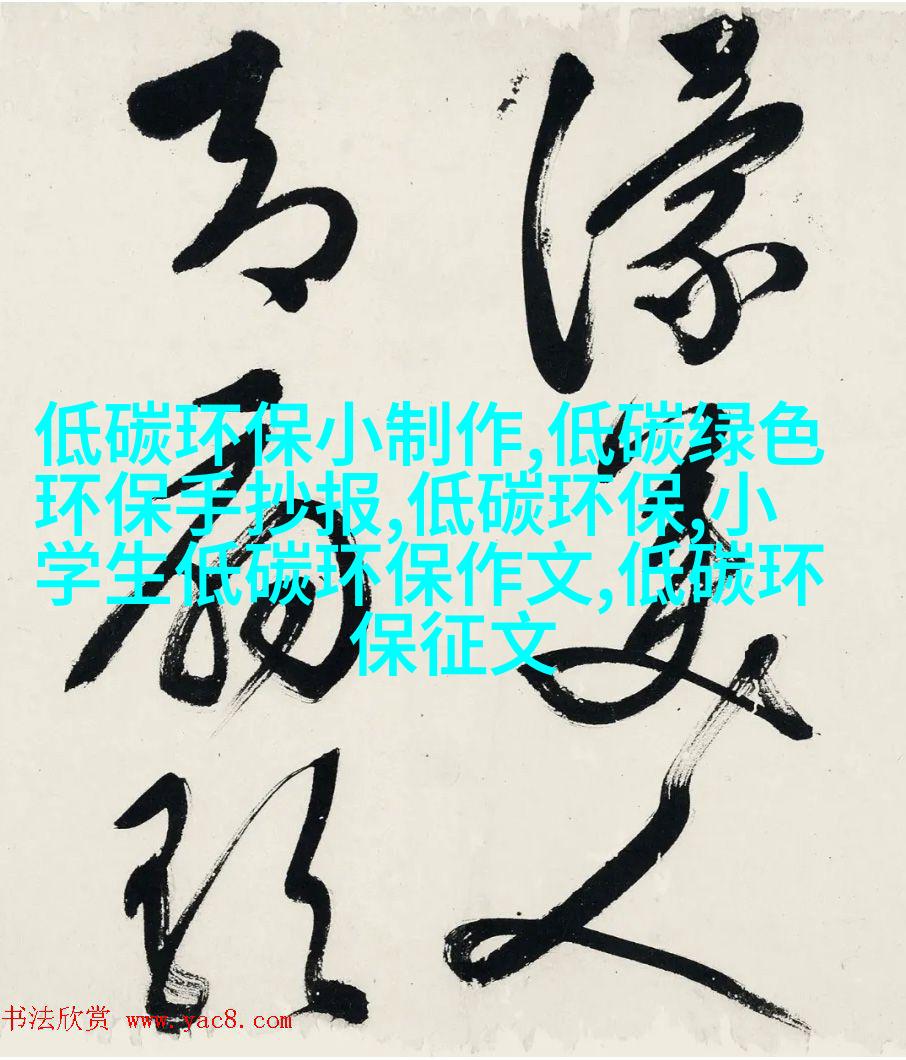 濛美人
低碳环保小制作,低碳绿色
环保手抄报,低碳环保,小
学生低碳环保作文,低碳环
保征文
书法欣赏 www.yac8.com